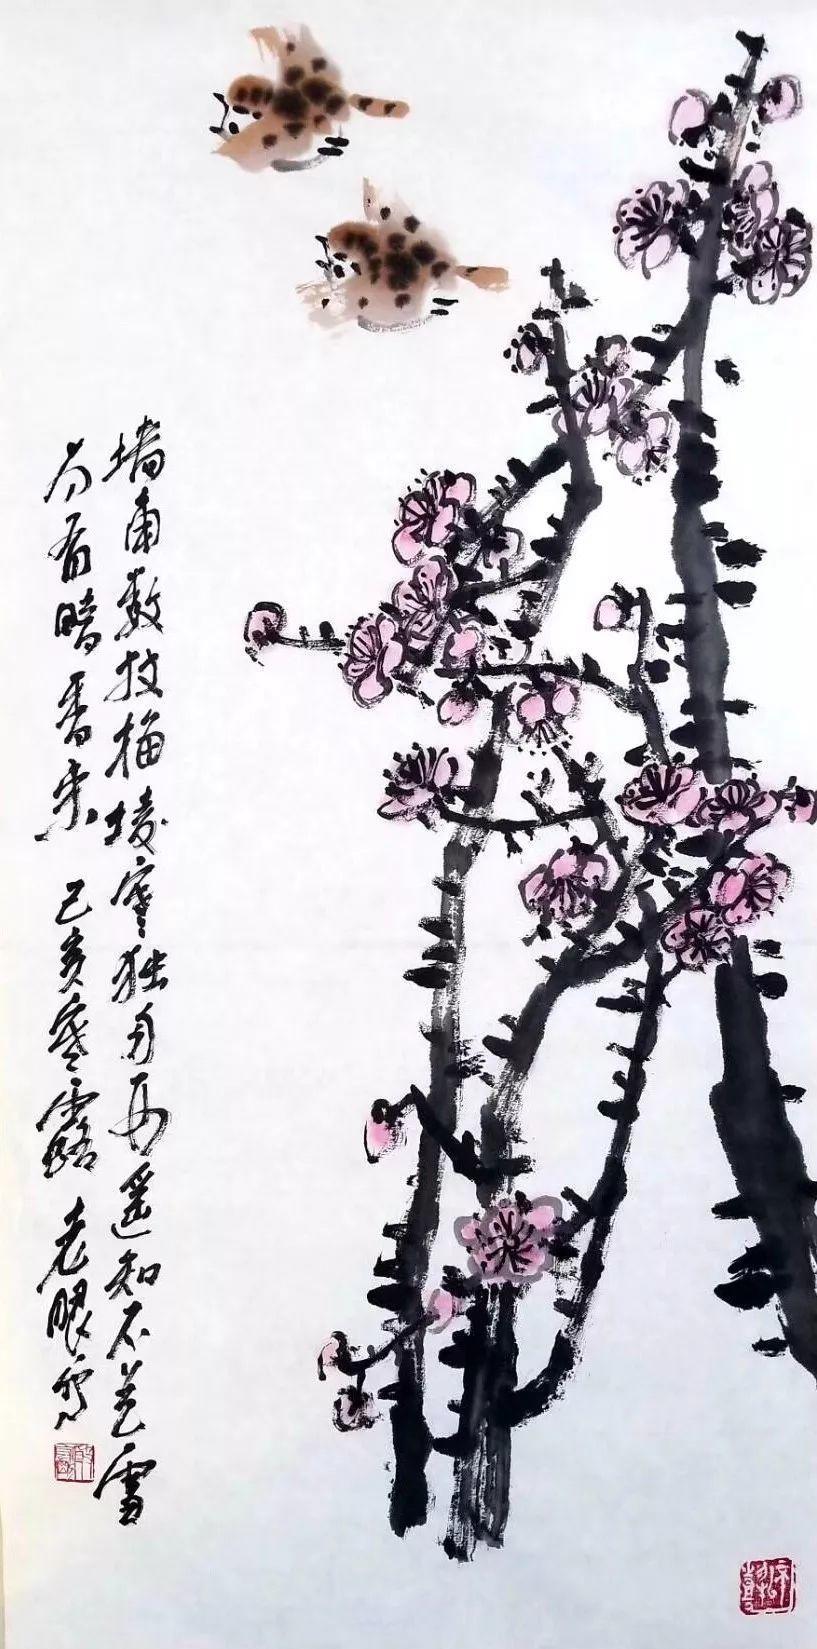 墙角数枝梅凌寒独自开遥知不是雪
为有暗香来 己亥寒露 老眼写